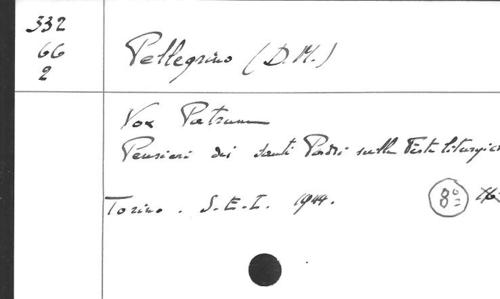 332
66
2
Pellegrino (D.M.)
Vox Patrum
Pensieri dei Santi Padri sulle Feste liturgic
Torino. S.E.I. 1944.
8º